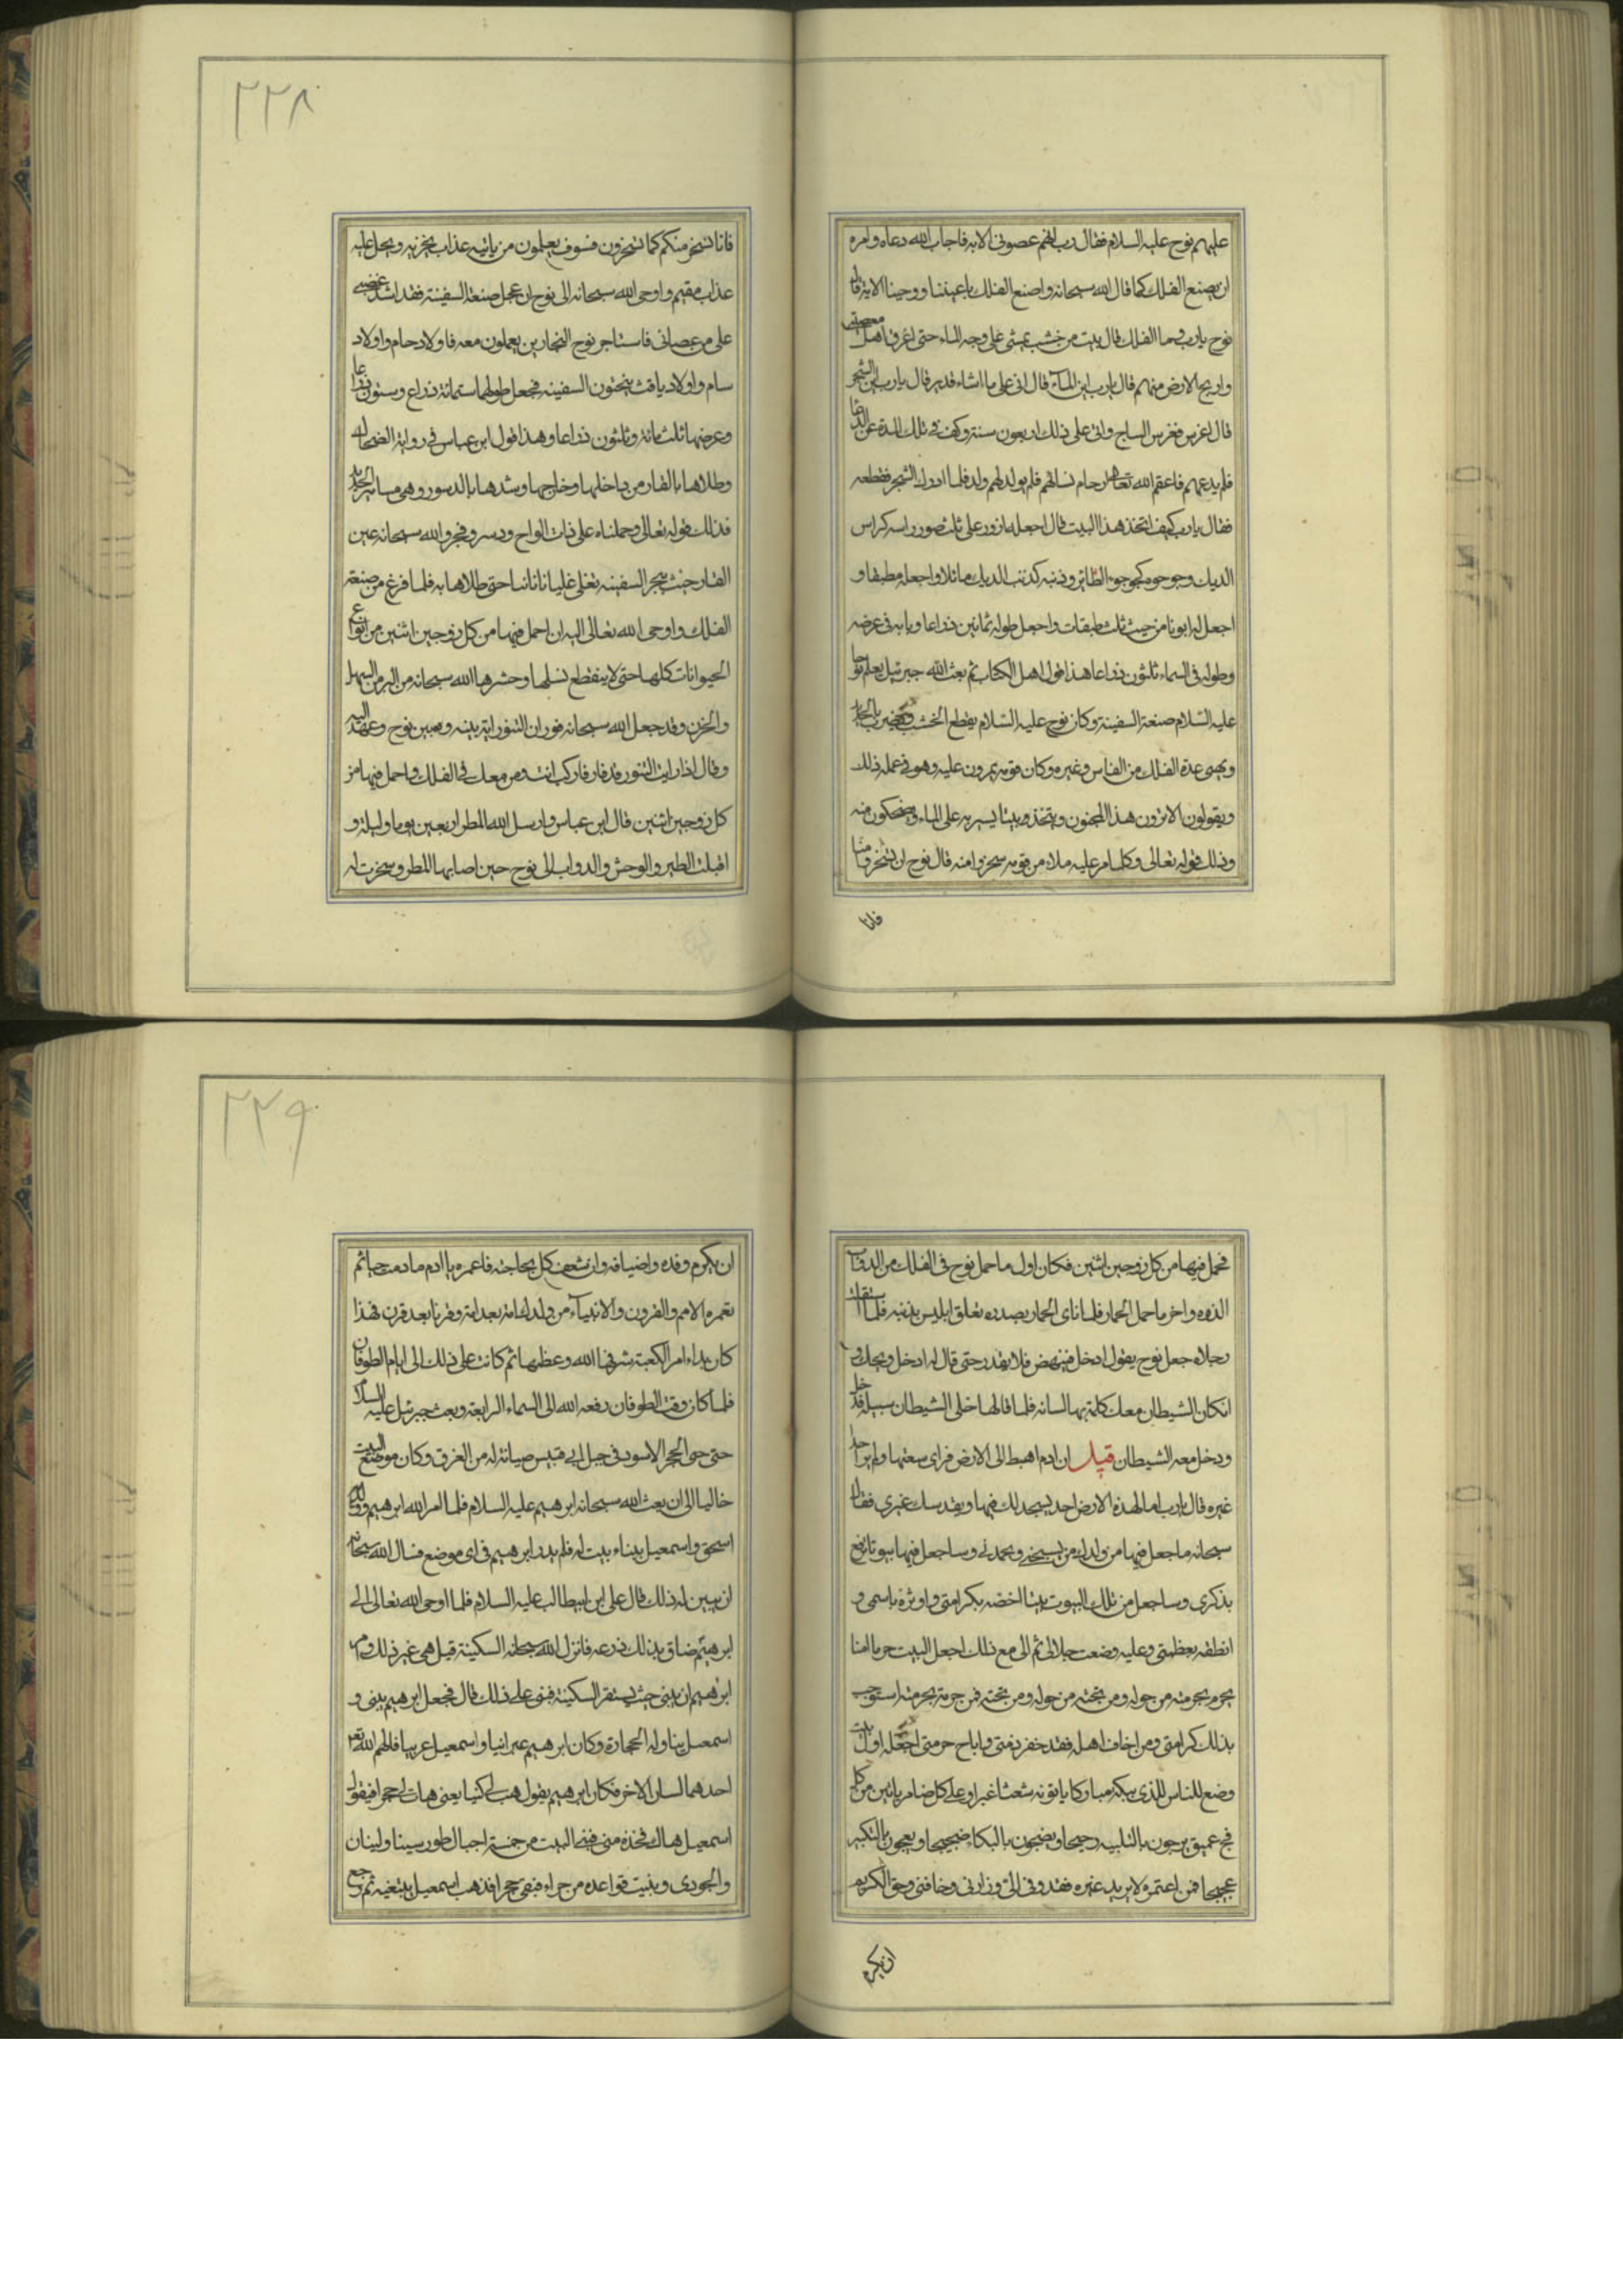 عليهم نوح عليه السلام فقال رب انهم عصونى الايه فاجاب الله دعاه وامره
ان يصنع الفلك كما قال الله سبحانه واصنع الفلك باعيننا ووحينا الاية قال
نوح يا رب وما الفلك قال بيت من خشب يمشى على وجه الماء حتى اغرق اهل معصيتى
واريح الارض منهم قال يا رب اين الماء قال انى على ما اشاء قدير قال يا رب اين الشجر
قال اغرس فغرس الساج واتى على ذلك اربعون سنة وكف فى تلك المدة عن الدعا
فلم يدعهم فاعقم الله تعا ارحام نسائهم فلم يولد لهم ولد فلما ادرك الشجر فقطعه
فقال يا رب كيف اتخذ هذا البيت قال اجعله ازور على ثلث صور راسه كراس
الديك وجوجوه كجوجوء الطائر وذنبه كذنب الديك مائلا واجعله مطبقا و
اجعل له ابوبا من حيث ثلث طبقات واجعل طوله ثمانين ذراعا وبابه فى عرضه
وطوله فى السماء ثلثون ذراعا هذا قول اهل الكتاب ثم بعث الله جبرئيل يعلم نوحا
عليه السلام صنعة السفينة وكان نوح عليه السلام يقطع الخشب ويضرب بالحديد
ويهيى عدة الفلك من القاس وغيره وكان قومه يمرون عليه وهو فى عمله ذلك
ويقولون الا ترون هذا المجنون ويتخذ بيتا يسير به على الماء ويضحكون منه
وذلك قوله تعالى وكلما مر عليه ملاء من قومه سخروا منه قال نوح ان تسخروا منا
فانا
٢٢٨
فانا نسخر منكم كما تسخرون فسوف يعلمون من ياتيه عذاب يخزيه ويحل عليه
عذاب مقيم واوحى الله سبحانه الى نوح ان عجل صنعة السفينة فقد اشتد غضبى
على من عصانى فاستاجر نوح النجارين يعملون معه فاولاد حام واولاد
سام واولاد يافث ينحتون السفينه فجعل طولها ستمائة ذراع وستون ذراعا
وعرضها ثلث مائة وثلثون ذراعا وهذا قول ابن عباس فى رواية الضحاك
وطلاها بالقار من داخلها وخارجها وشدها بالدسور وهى مسامير الحديد
فذلك قوله تعالى وحملناه على ذات الواح ودسر وفجر والله سبحانه عين
القار حيث ينجر السفينه تغلى غليانا حتى طلاها به فلما فرغ من صنعة
الفلك واوحى الله تعالى اليه ان احمل فيها من كل زوجين اثنين من انواع
الحيوانات كلها حتى لا ينقطع نسلها وحشرها الله سبحانه من البر من السهل
والحزن وقد جعل الله سبحانه فوران التنور اية بينه وبين نوح وعهد اليه
وقال اذا رايت التنور قد فار فاركب انت ومن معك فى الفلك واحمل فيها من
كل زوجين اثنين قال ابن عباس وارسل الله المطر اربعين يوما وليلة و
اقبلت الطير والوحش والدواب الى نوح حين اصابها المطر وسخرت له
فحمل فيها من كل زوجين اثنين فكان اول ما حمل نوح فى الفلك من الدواب
الذره واخر ما حمل الحمار فلما ناى الحمار بصدره تعلق ابليس بذنبه فلما استقلت
رجلاه جعل نوح يقول ادخل فينهض فلا يقدر حتى قال له ادخل ويحك و
انكان الشيطان معك كلمة بها لسانه فلما قالها خلى الشيطان سبيله فدخل
ودخل معه الشيطان قيل ان ادم اهبط الى الارض فراى سعتها ولم ير احدا
غيره قال يا رب اما لهذه الارض احد يسجد لك فيها ويقدسك غيرى فقال
سبحانه ساجعل فيها من ولدك من يسبحنى ويحمدنى وساجعل فيها بيوتا ترفع
بذكرى وساجعل من تلك البيوت بيتا اخصه بكرامتى واوثره باسمى و
انطقه بعظمتى وعليه وضعت جلالى ثم الى مع ذلك اجعل البيت حرما امنا
يحرم بحرمته من حوله ومن تحته من حوله ومن تحته فمن حرمه بحرمته استوجب
بذلك كرامتى ومن اخاف اهله فقد خفر ذمتى واباح حرمتى اجعله اول بيت
وضع للناس للذى ببكة مباركا ياتونه شعثا غبرا وعلى كل ضامر ياتين من كل
فج عميق يرجون بالتلبيه رجيجا ويضجون بالبكاء ضجيجا ويعجون بالتكبير
عجيجا فمن اعتمره لا يريد غيره فقد وفى الى وزارنى وضافنى وحق الكريم
ان يكرم
٢٢٩
ان يكرم وفده واضيافه وان تسعف كل بحاجته فاعمره يا ادم ما دمت حيا ثم
تعمره الامم والقرون والانبياء من ولدك امة بعد امة وقرنا بعد قرن فهذا
كان بداء امر الكعبة شرفها الله وعظمها ثم كانت على ذلك الى ايام الطوفان
فلما كان وقت الطوفان رفعه الله الى السماء الرابعة وبعث جبرئيل عليه السلام
حتى حى الحجر الاسود فى جبل ابى قبيس صيانة له من الغرق وكان موضع البيت
خاليا الى ان بعث الله سبحانه ابرهيم عليه السلام فلما امر الله ابرهيم وولد له
اسحق واسمعيل ببناء بيت له فلم يدر ابرهيم فى اى موضع فسال الله سبحانه
ان يبين له ذلك قال على ابن ابيطالب عليه السلام فلما اوحى الله تعالى الى
ابرهيم ضاق بذلك ذرعه فانزل الله سبحانه السكينة قيل هى غير ذلك وامر
ابرهيم ان يبنى حيث يستقر السكينة فبنى على ذلك قال فجعل ابرهيم يبنى و
اسمعيل يناوله الحجارة وكان ابرهيم عبرانيا واسمعيل عربيا فالهم الله تعا
احدهما لسان الاخر فكان ابرهيم يقول هب لى كنيا يعنى هات لى حجرا فيقول
اسمعيل هاك فخذه منى فبنى البيت من خمسة اجبال طور سينا ولينان
والجودى وبنيت قواعده من حراء فبقى حجر افذهب اسمعيل يبتغيه ثم رجع